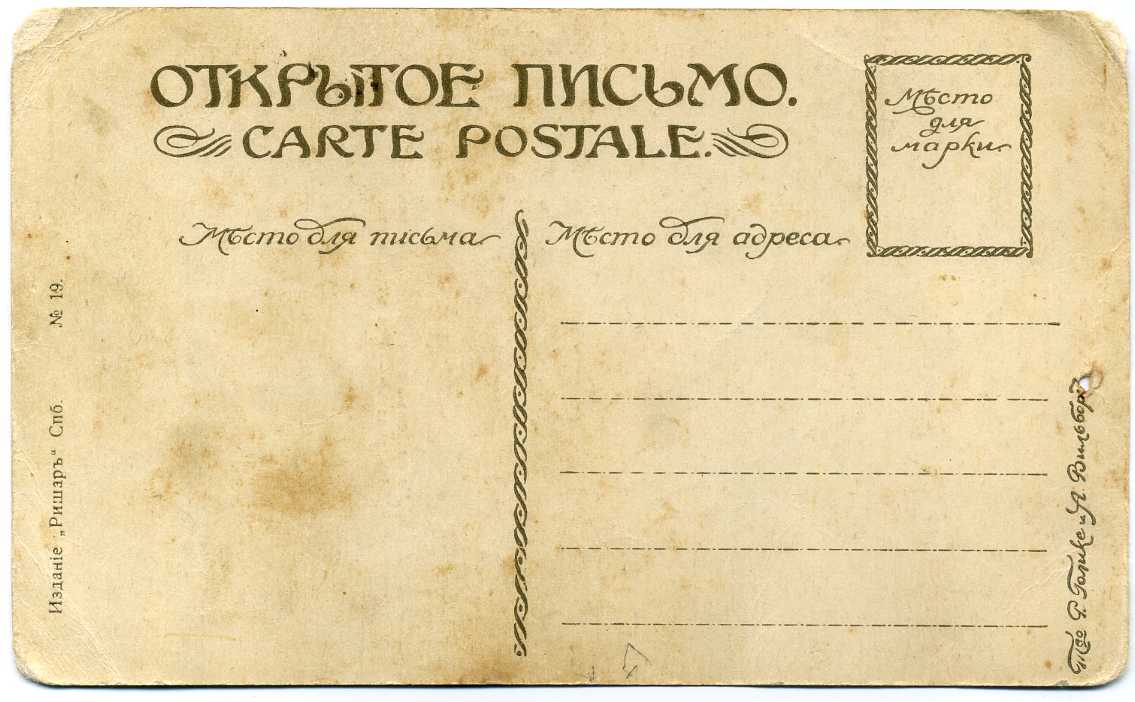 ОТКРЫТОЕ ПИСЬМО.
CARTE POSTALE.
Мѣсто
для
марки
Мѣсто для письма
Мѣсто для адреса
№ 19.
Изданіе „Ришаръ“ Спб.
Т-во Р. Голике и А. Вильборг